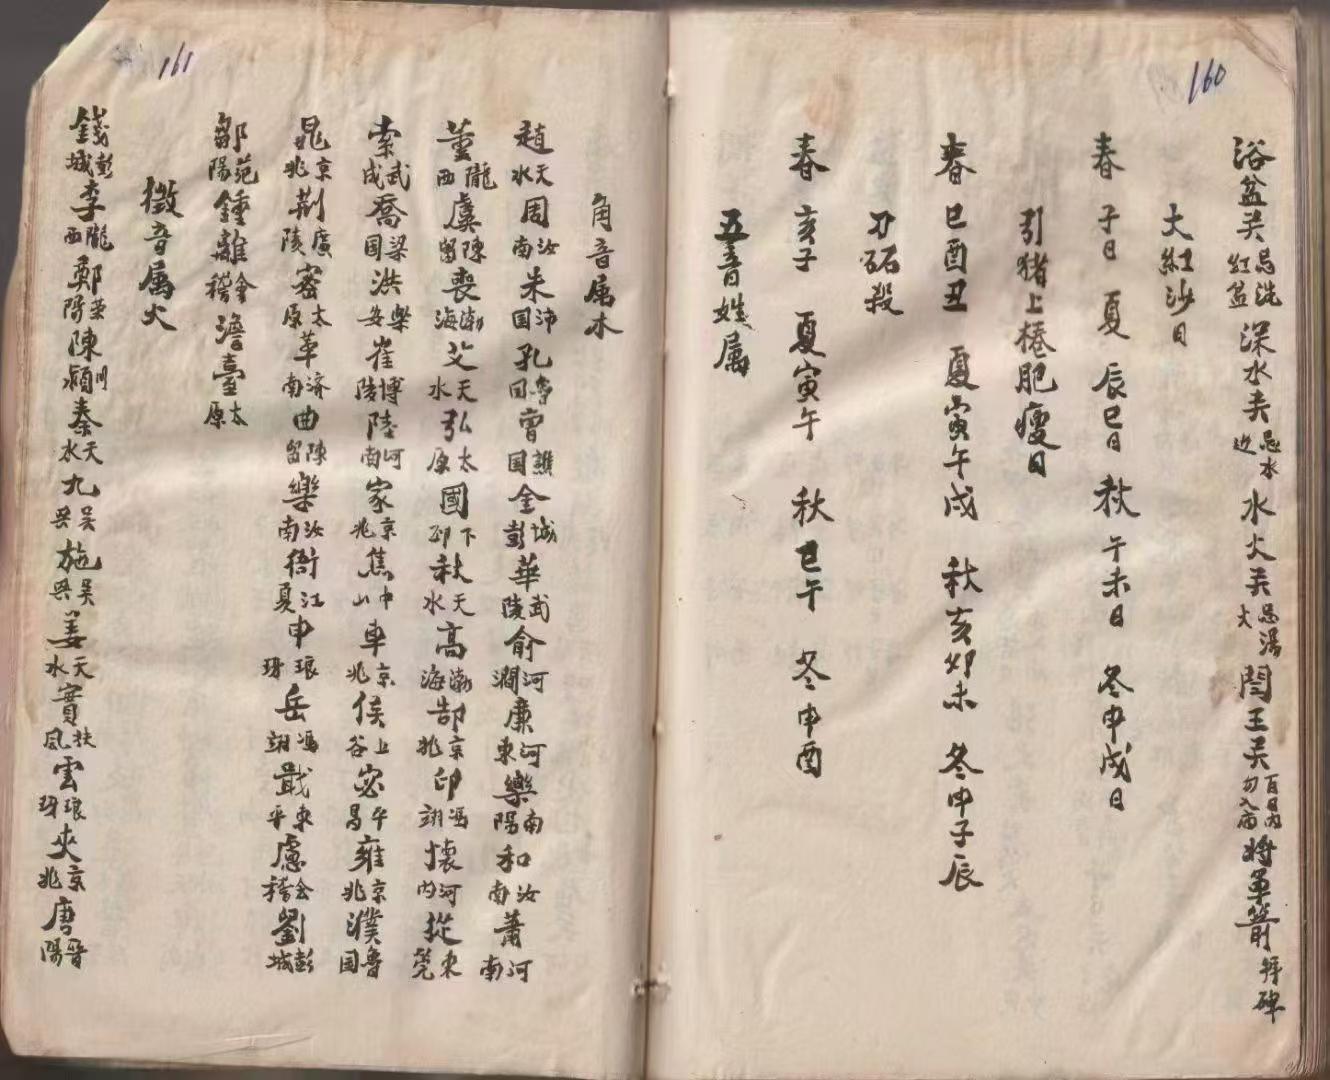 160
浴盆关忌洗红盆深水关忌水近水火关忌汤火閆王关百日内勿入庙将軍箭
大紅沙日
春子日夏辰巳日秋午未日冬申戌日
引猪上楼肥瘦日
春巳酉丑夏寅午戌秋亥卯未冬申子辰
刀砧殺
春亥子夏寅午秋巳午冬申酉
五音姓属
161
角音属木
趙天水周汝南朱沛国孔魯国曾譙国金彭城華武陵俞河澗廉河東樂南陽和汝南萧河南
董隴西虞陳留喪渤海艾天水弘太原國下邳秋天水高渤海郜京兆印馮翊懷河内從東莞
索武成喬梁国洪樂安崔博陵陸河南家京兆焦中山車京兆侯上谷宓平昌雍京兆濮魯国
晁京兆荆廣陵密太原革济南曲陳留樂汝南衙江夏申琅玡岳馮翊戢東平慮会稽劉彭城
鄒范陽鍾離會稽澹臺太原
徵音属火
錢彭城李隴西鄭荣陽陳颍秦天水九吴興施吴興姜天水實扶風雲琅玡夾京兆唐晉陽